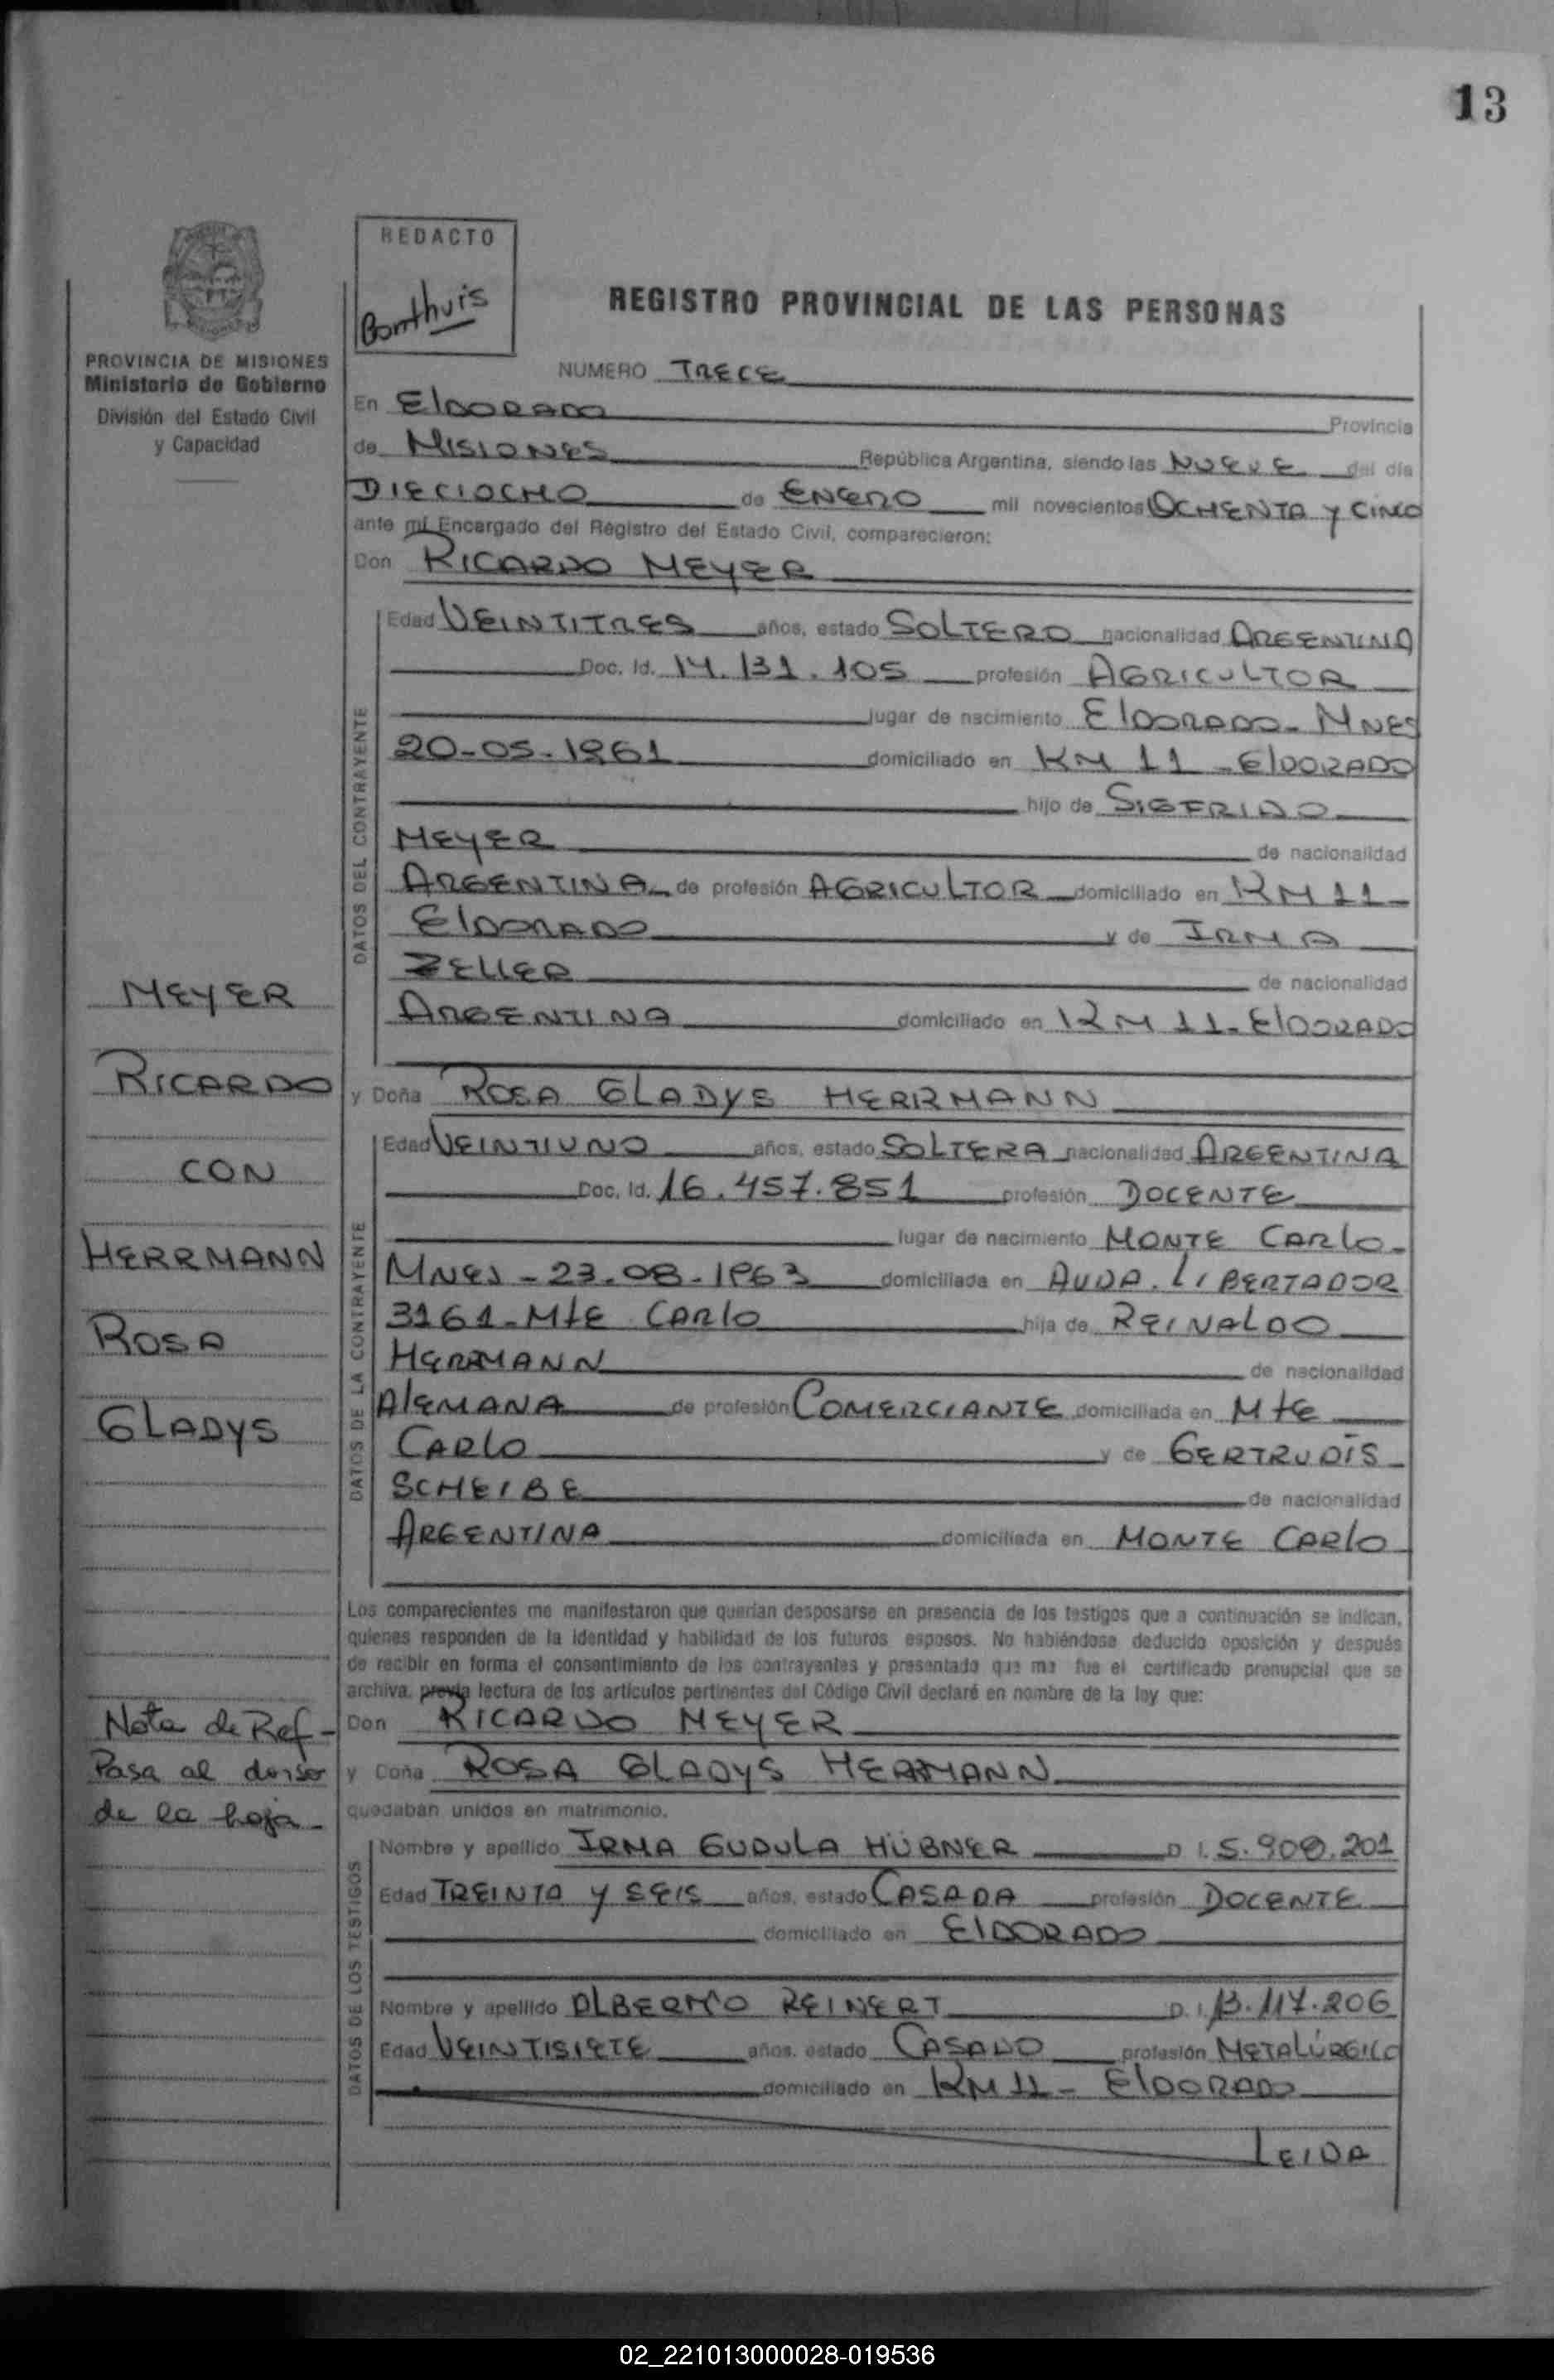 13
REDACTO
Bonthuis
REGISTRO PROVINCIAL DE LAS PERSONAS
PROVINCIA DE MISIONES
Ministerio de Gobierno
División del Estado Civil
y Capacidad
NUMERO TRECE
En ElDORADO Provincia
de MISIONES República Argentina, siendo las NUEVE del día
DIECIOCHO de ENERO mil novecientos OCHENTA y CINCO
ante mí Encargado del Registro del Estado Civil, comparecieron:
Don RICARDO MEYER
DATOS DEL CONTRAYENTE
Edad VEINTITRES años, estado SOLTERO nacionalidad ARGENTINA
Doc. Id. 14.131.105 profesión AGRICULTOR
lugar de nacimiento ElDORADO-MNES
20-05-1961 domiciliado en KM 11 - ElDORADO
hijo de SIGFRIDO
MEYER de nacionalidad
ARGENTINA de profesión AGRICULTOR domiciliado en KM 11-
ElDORADO y de IRMA
ZELLER de nacionalidad
ARGENTINA domiciliado en KM 11-ElDORADO
MEYER
RICARDO
CON
HERRMANN
ROSA
GLADYS
y Doña ROSA GLADYS HERRMANN
DATOS DE LA CONTRAYENTE
Edad VEINTIUNO años, estado SOLTERA nacionalidad ARGENTINA
Doc. Id. 16.457.851 profesión DOCENTE
lugar de nacimiento MONTE CARlO-
MNES - 23-08-1963 domiciliada en AVDA. LIBERTADOR
3161-MtE CARlO hija de REINALDO
HERRMANN de nacionalidad
AlEMANA de profesión COMERCIANTE domiciliada en MtE
CARLO y de GERTRUDIS
SCHEIBE de nacionalidad
ARGENTINA domiciliada en MONTE CARlO
Los comparecientes me manifestaron que querían desposarse en presencia de los testigos que a continuación se indican,
quienes responden de la identidad y habilidad de los futuros esposos. No habiéndose deducido oposición y después
de recibir en forma el consentimiento de los contrayentes y presentado que me fue el certificado prenupcial que se
archiva, previa lectura de los artículos pertinentes del Código Civil declaré en nombre de la ley que:
Don RICARDO MEYER
y Doña ROSA GLADYS HERRMANN
quedaban unidos en matrimonio.
Nota de Ref-
Pasa al dorso
de la hoja-
DATOS DE LOS TESTIGOS
Nombre y apellido IRMA GUDULA HÜBNER D. I. 5.909.201
Edad TREINTA y SEIS años, estado CASADA profesión DOCENTE
domiciliado en ElDORADO
Nombre y apellido ALBERTO REINERT D. I. 13.117.206
Edad VEINTISIETE años, estado CASADO profesión METALÚRGICO
domiciliado en KM 11- ElDORADO
LEIDA
02_221013000028-019536